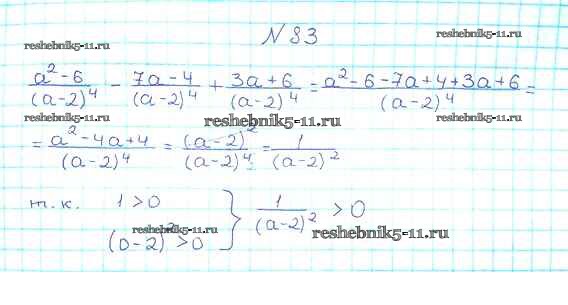 N 83
reshebnik5-11.ru reshebnik5-11.ru
(a²-6)/(a-2)⁴ - (7a-4)/(a-2)⁴ + (3a+6)/(a-2)⁴ = (a²-6-7a+4+3a+6)/(a-2)⁴ =
reshebnik5-11.ru reshebnik5-11.ru reshebnik5-11.ru
= (a²-4a+4)/(a-2)⁴ = (a-2)²/(a-2)⁴ = 1/(a-2)²
т.к. 1>0 } 1/(a-2)² > 0
reshebnik5-11.ru reshebnik5-11.ru
(a-2)²>0